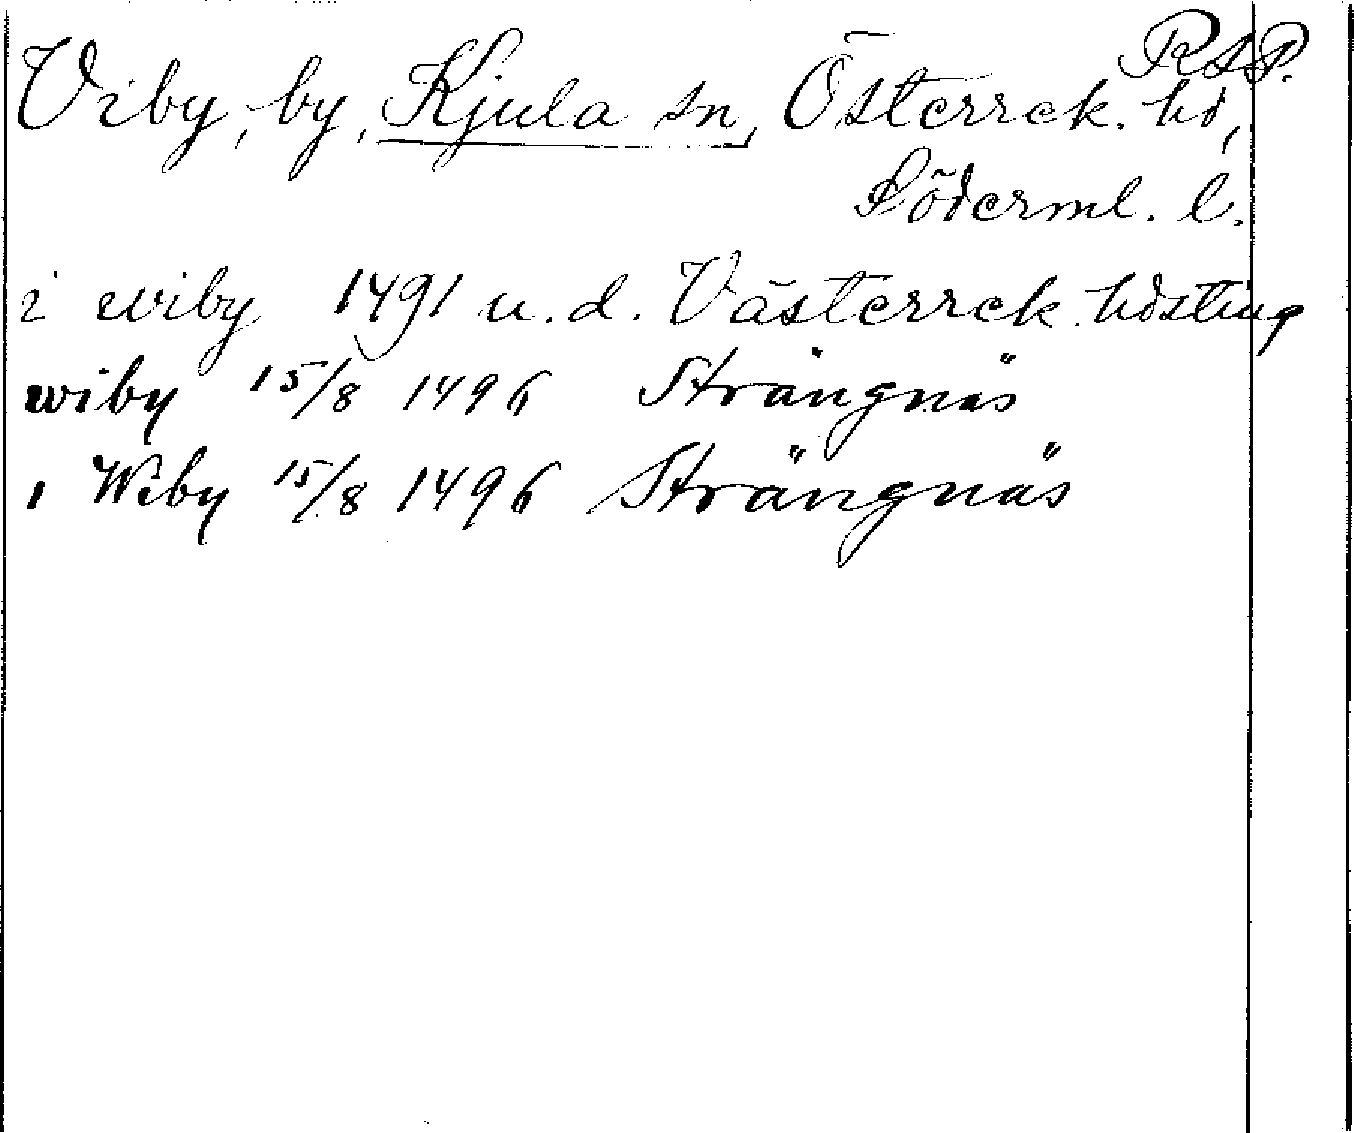 RAP.
Viby, by, Kjula sn, Österrek. hd,
Söderml. l.
i wiby 1491 u. d. Västerrek. hdsting
wiby 15/8 1496 Strängnäs
i Wiby 15/8 1496 Strängnäs